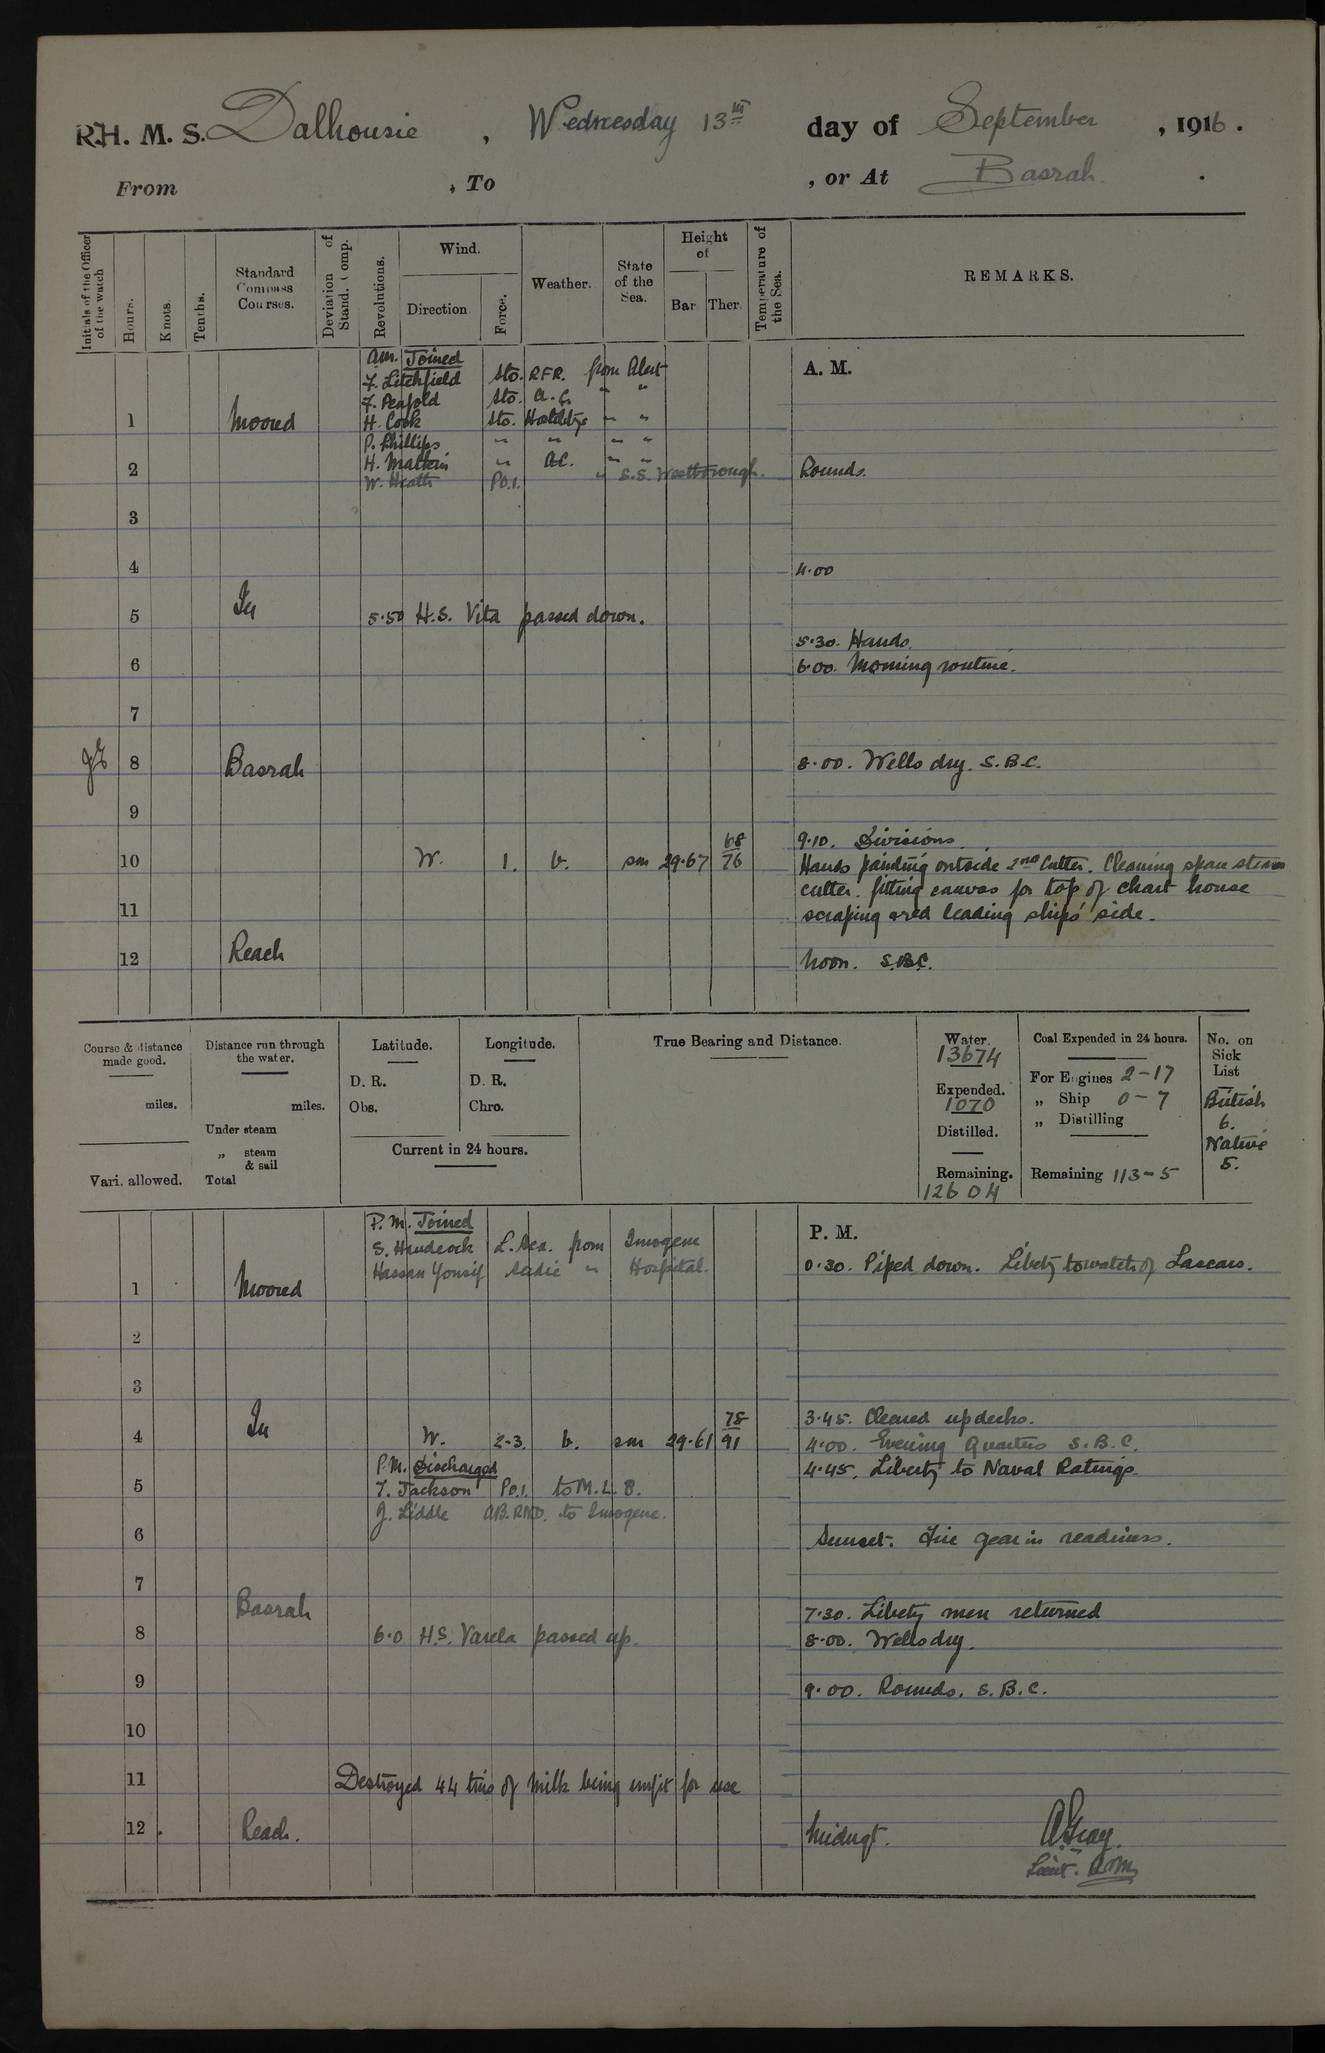 R.H. M. S. Dalhousie , Wednesday 13th day of September , 1916 .
From , To , or At Basrah .
Initials of the Officer of the watch
Hours.
Knots.
Tenths.
Standard Compass Courses.
Deviation of Stand. Comp.
Revolutions.
Wind.
Direction
Force.
Weather.
State of the Sea.
Height of
Bar Ther.
Temperature of the Sea.
REMARKS.
am. Joined
A. M.
F. Litchfield Sto. RFR. from Alert
F. Penfold Sto. a.c. " "
1 Moored H. Cook Sto. " "
P. Phillips " " " "
H. " a.c. " "
2 Rounds.
W. Heath P.O.1. " S.S. Westborough.
3
4 4.00
In
5 5.50 H.S. Vita passed down.
5.30. Hands.
6 6.00. Morning routine.
7
8 Basrah 8.00. Wells dry. S.B.C.
9
9.10. Divisions.
10 W. 1. b. sm 29.67 68/76 Hands painting outside 2nd Cutter. Cleaning steam
cutter. fitting canvas for top of chart house
11 scraping & red leading ship's side.
12 Reach Noon. S.B.C.
Course & distance made good.
miles.
Vari. allowed.
Distance run through the water.
miles.
Under steam
„ steam & sail
Total
Latitude.
D. R.
Obs.
Longitude.
D. R.
Chro.
Current in 24 hours.
True Bearing and Distance.
Water.
13674
Expended.
1070
Distilled.
Remaining.
12604
Coal Expended in 24 hours.
For Engines 2-17
„ Ship 0-7
„ Distilling
Remaining 113-5
No. on Sick List
British
6.
Native
5.
P.M. Joined
P. M.
S. Handcock L. Sea. from Imogene
Hassan Yousif " Hospital.
0.30. Piped down. Liberty to watch of Lascars.
1 Moored
2
3
In
3.45. Cleared up decks.
4 W. 2-3. b. sm 29.61 78/91 4.00. Evening Quarters S.B.C.
P.M. Discharged
4.45. Liberty to Naval Ratings.
5 F. Jackson P.O.1. to M.L. 8.
J. Liddle AB. RND. to Imogene.
6 Sunset. Fire gear in readiness.
7
Basrah 7.30. Liberty men returned
8 6.0 H.S. Varela passed up. 8.00. Wells dry.
9 9.00. Rounds. S.B.C.
10
11 Destroyed 44 tins of Milk being unfit for use
12 . Reach. Midngt. A. Gray.
Lieut. R.I.M.